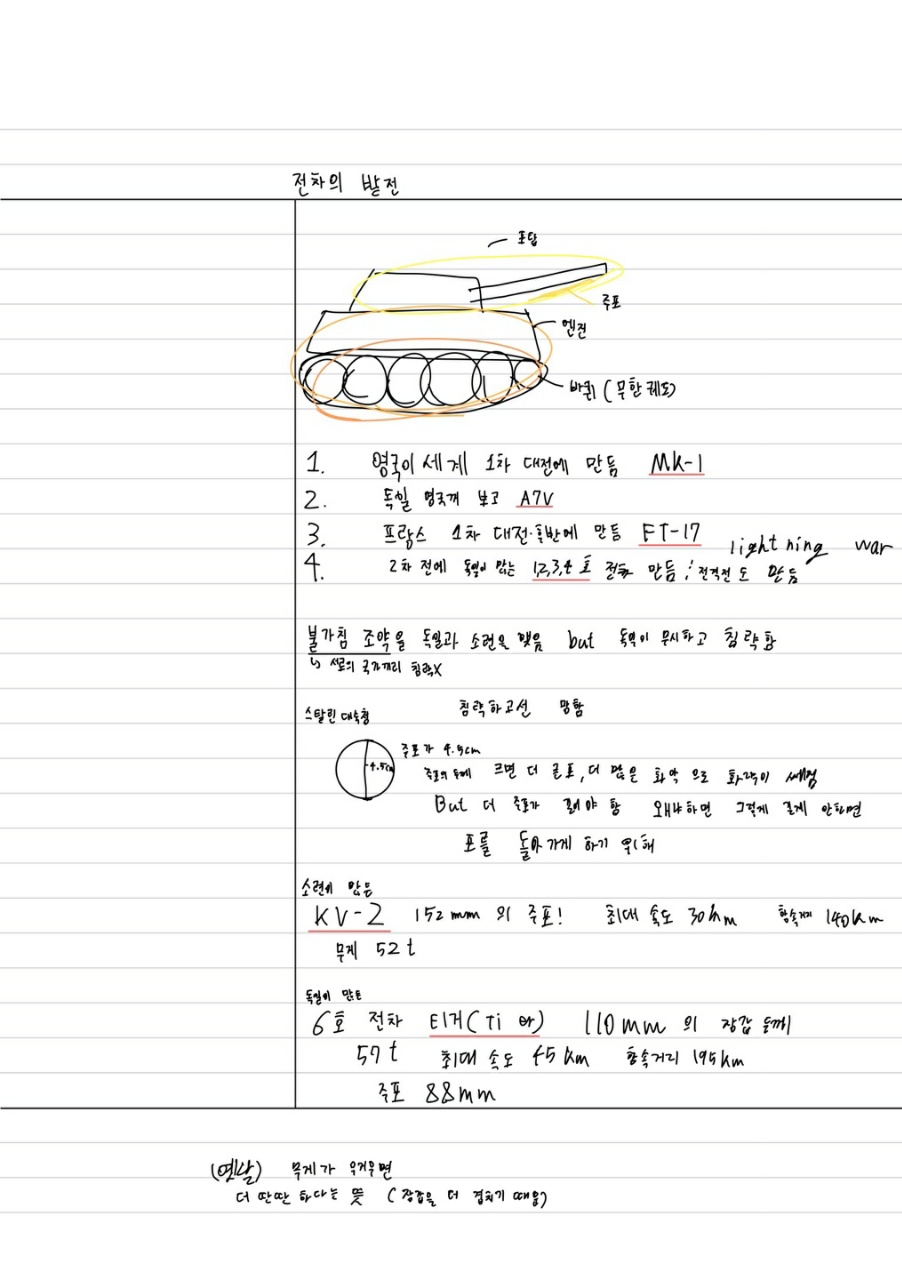 전차의 발전
포탑
주포
엔진
바퀴 (무한궤도)
1. 영국이 세계 1차 대전에 만듬 Mk-1
2. 독일 영국꺼 보고 A7V
3. 프랑스 1차 대전 후반에 만듬 FT-17
lightning war
4. 2차 전에 독일이 만든 1,2,3,4 호 만듬 전격전도 만듬
불가침 조약을 독일과 소련을 맺음 but 독일이 무시하고 침략함
↳ 서로의 국가끼리 침략X
침략하고선 망함
스탈린
4.5cm
주포가 4.5cm
주포의 두께 크면 더 큰포, 더 많은 화약으로 화력이 쎄짐
But 더 주포가 길어야 함 왜냐하면 그렇게 길게 안하면
포를 돌아가게 하기 위해
소련이 만든
KV-2 152mm 의 주포! 최대 속도 30km 140km
무게 52t
독일이 만든
6호 전차 티거(Ti 어) 110mm 의 장갑 두께
57t 최대 속도 45km 항속거리 195km
주포 88mm
(옛날) 무게가 무거우면
더 딴딴 하다는 뜻 (장갑을 더 겹치기 때문)